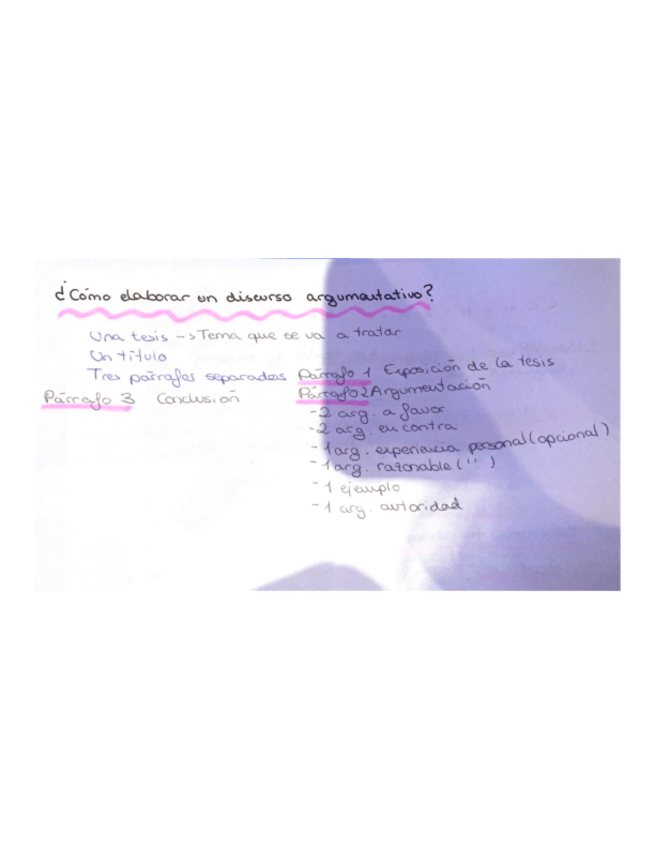 ¿Cómo elaborar un discurso argumentativo?
Una tesis -> Tema que se va a tratar
Un título
Tres párrafos separados Párrafo 1 Exposición de la tesis
Párrafo 2 Argumentación
- 2 arg. a favor
- 2 arg. en contra
- 1 arg. experiencia personal (opcional)
- 1 arg. razonable ( '' )
- 1 ejemplo
- 1 arg. autoridad
Párrafo 3 Conclusión